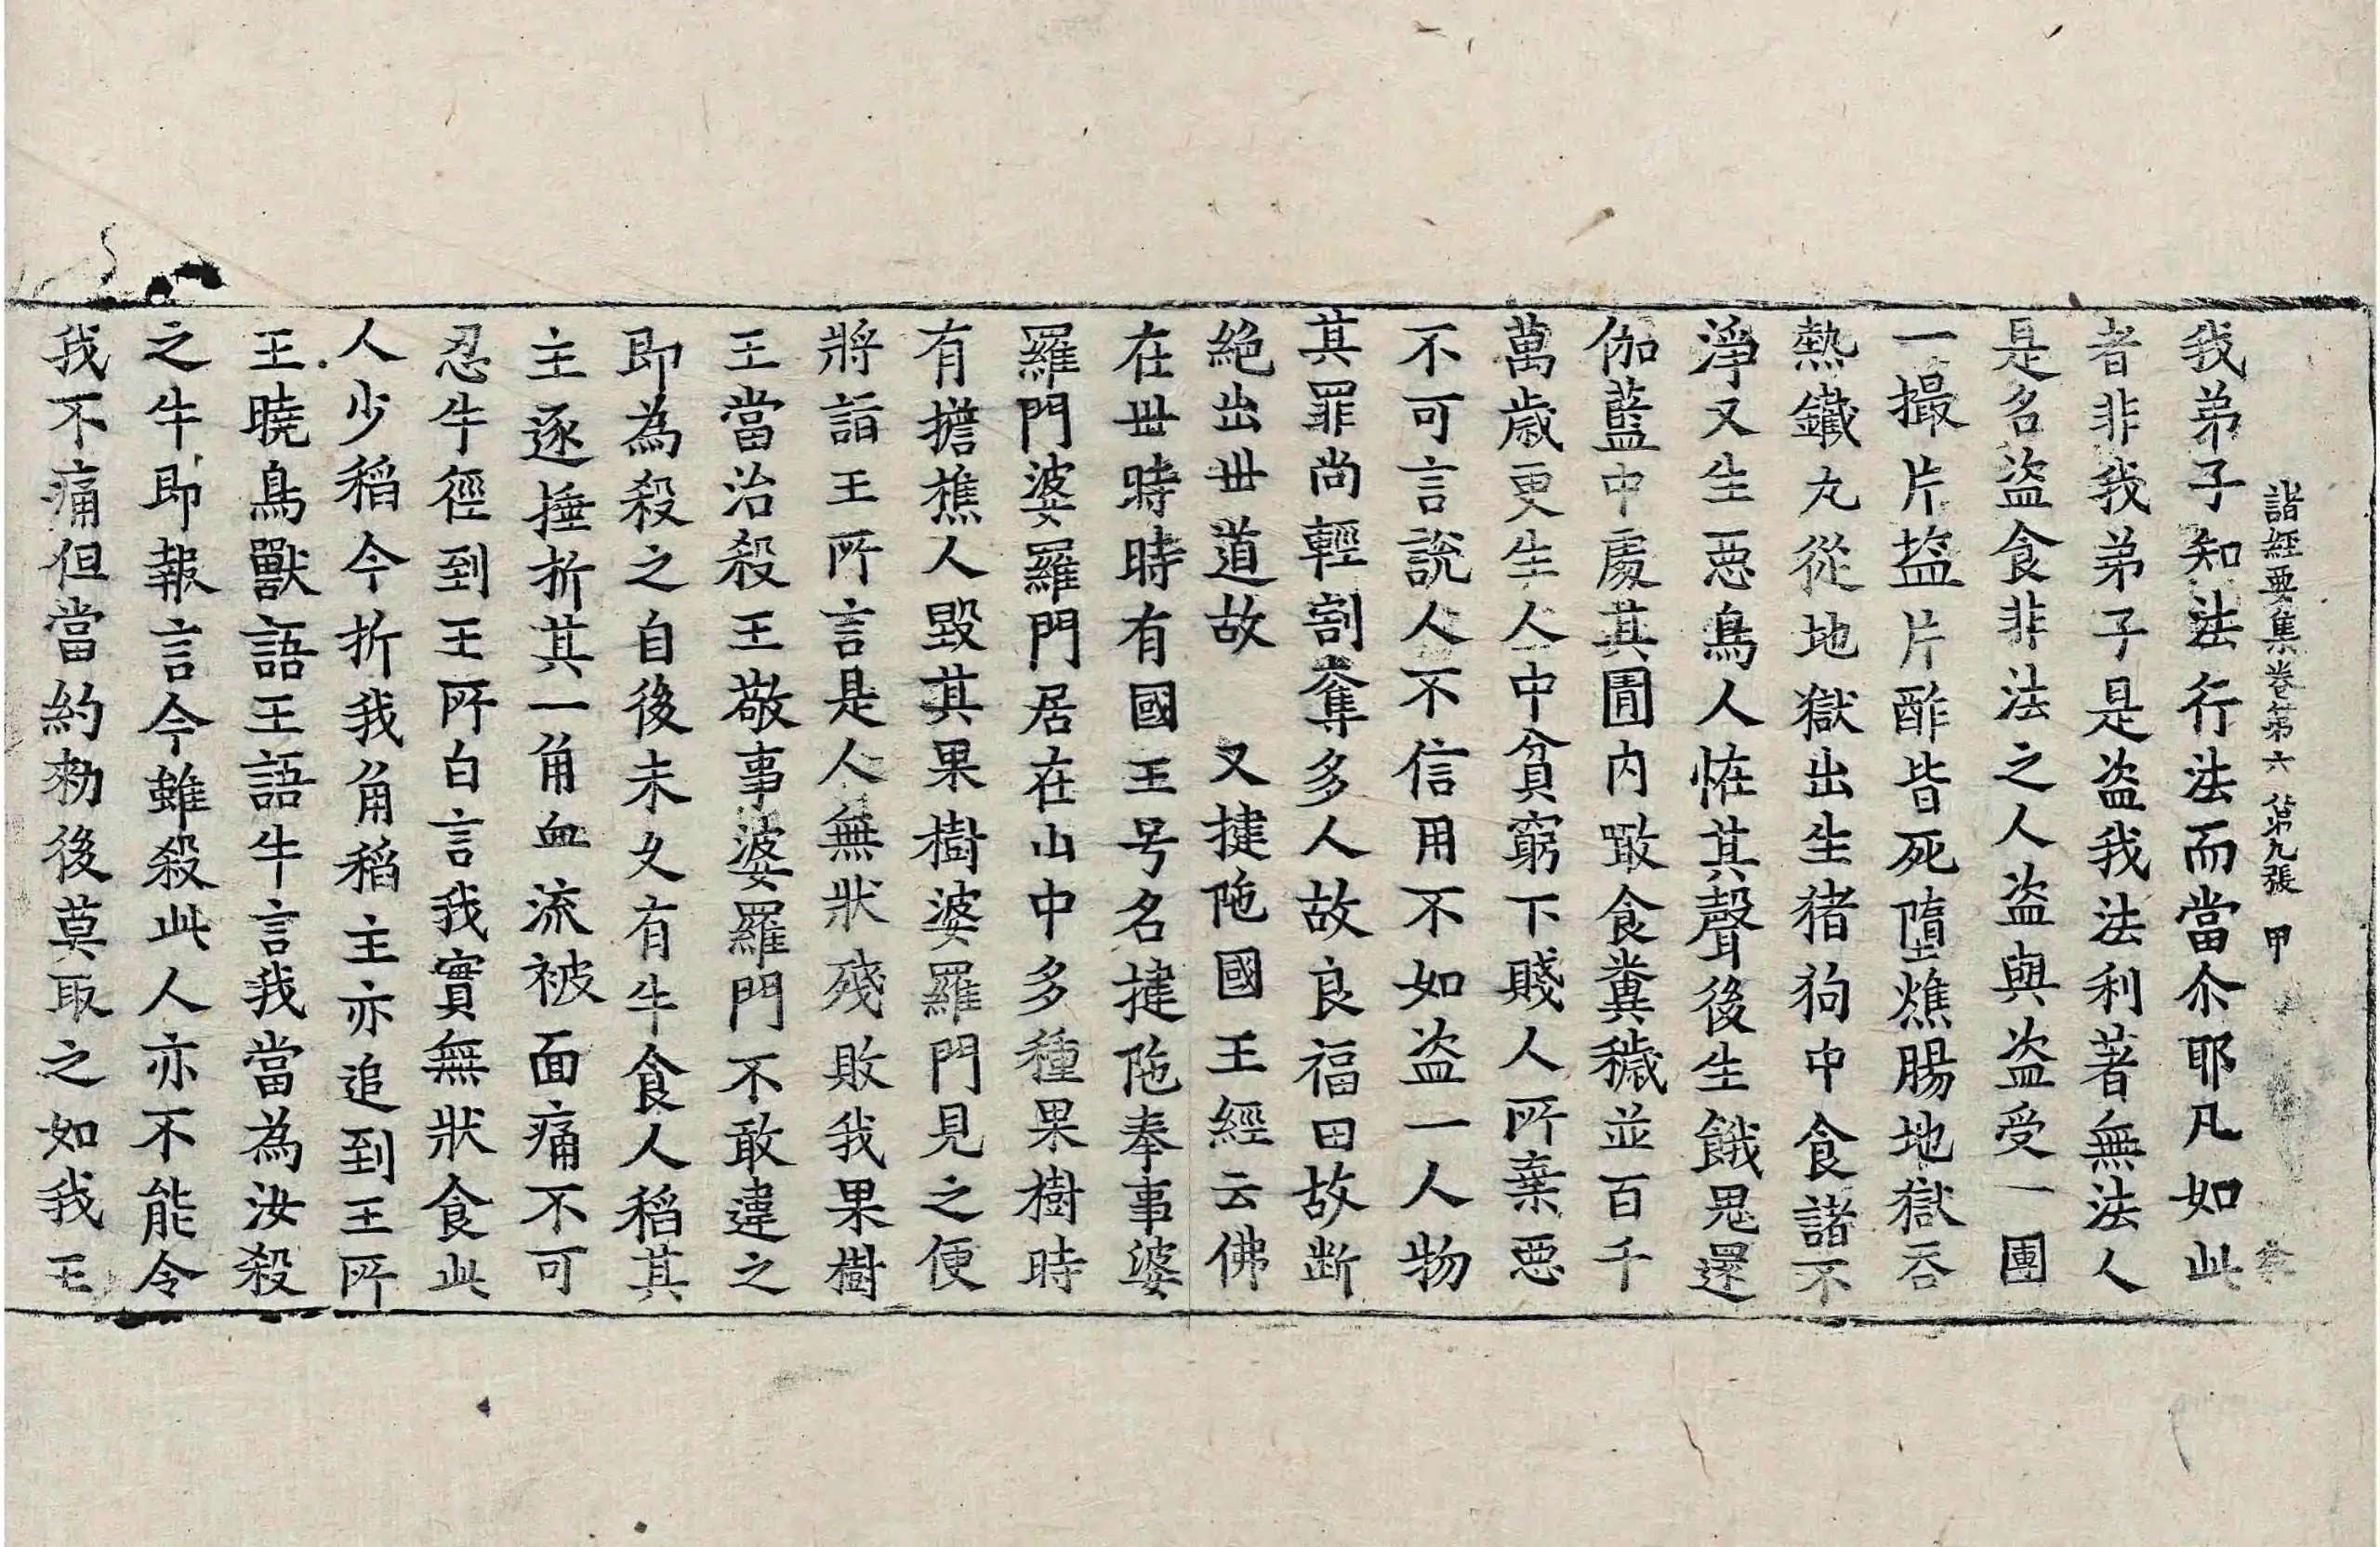 諸經要集卷第六 第九張 甲
我弟子知法行法而當尒耶凡如此
者非我弟子是盜我法利著無法人
是名盜食非法之人盜與盜受一團
一撮片塩片酢皆死墮燋腸地獄吞
熱鐵丸從地獄出生猪狗中食諸不
淨又生惡鳥人恠其聲後生餓鬼還
伽藍中處其圊内噉食糞穢並百千
萬歲更生人中貧窮下賤人所棄惡
不可言說人不信用不如盜一人物
其罪尚輕割奪多人故良福田故断
絕出世道故　又揵陁國王經云佛
在世時時有國王号名揵陁奉事婆
羅門婆羅門居在山中多種果樹時
有擔樵人毀其果樹婆羅門見之便
將詣王所言是人無狀殘敗我果樹
王當治殺王敬事婆羅門不敢違之
即為殺之自後未久有牛食人稻其
主逐捶折其一角血流被面痛不可
忍牛徑到王所白言我實無狀食此
人少稻今折我角稻主亦追到王所
王曉鳥獸語王語牛言我當為汝殺
之牛即報言今雖殺此人亦不能令
我不痛但當約勑後莫取之如我王